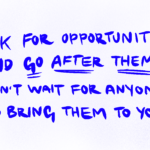 K FOR OPPORTUNIT
GO AFTER THEM
N'T WAIT FOR ANYON
BRING THEM TO YO